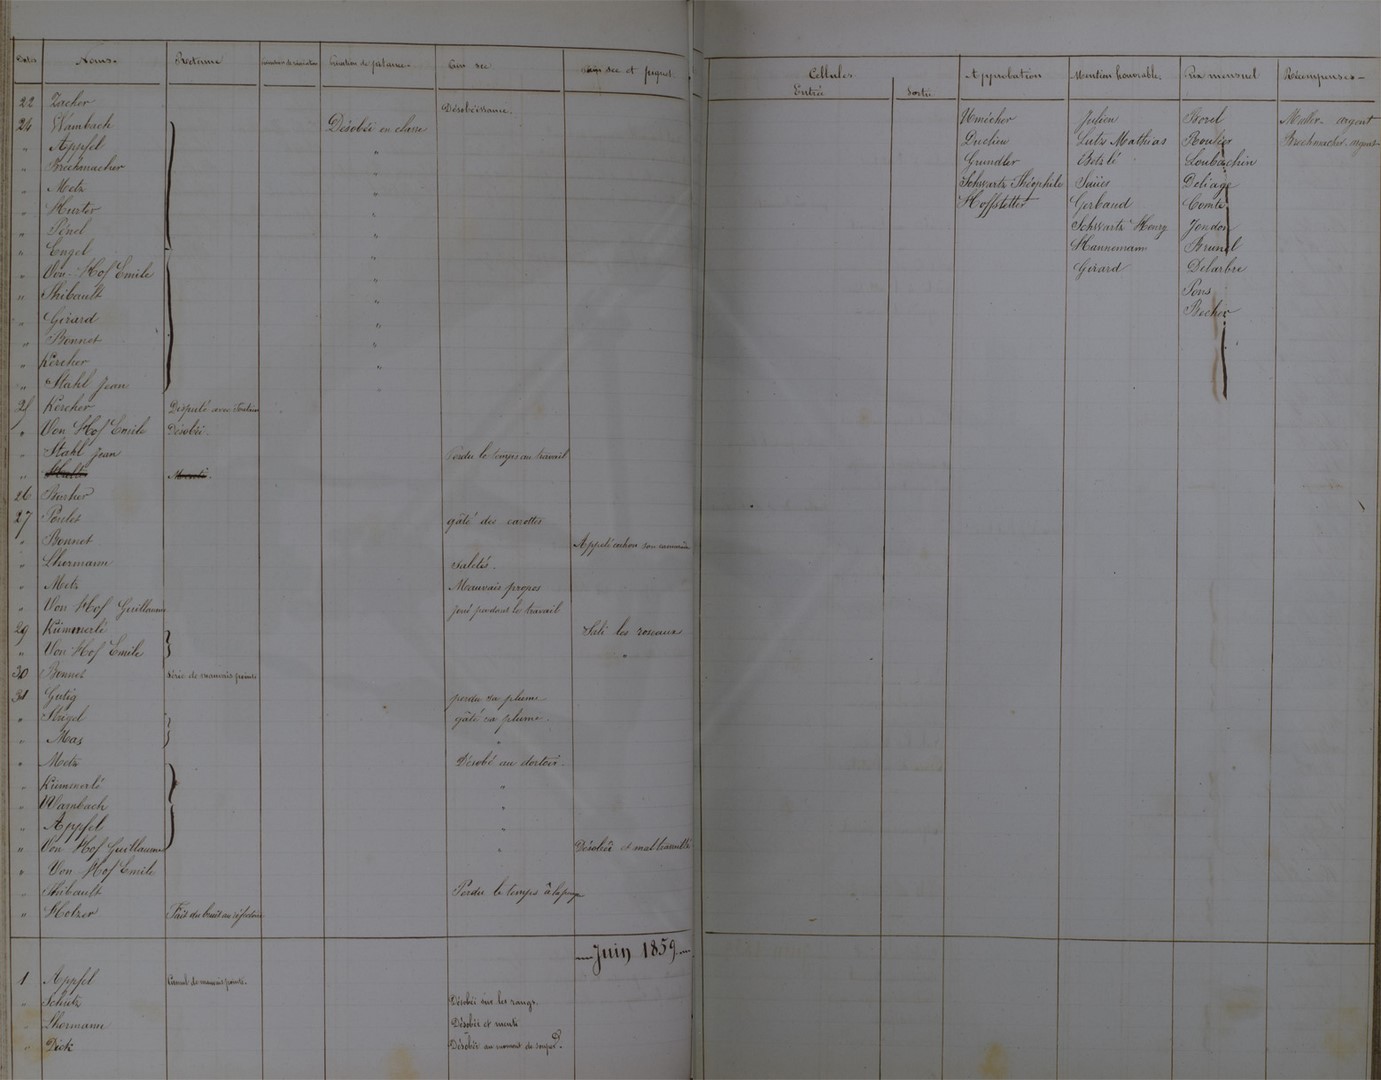 Dates Noms Retenue Privation de récréation Privation de pitance Pain sec Pain sec et piquet
22 Zacher Désobéissance.
24 Wambach Désobéi en classe
" Appfel "
" Bischmacher "
" Metz "
" Hurter "
" Pénel "
" Engel "
" Von-Hof Emile "
" Thibault "
" Girard "
" Bonnet "
" Kercher "
" Stahl Jean "
25 Kercher Disputé avec
" Von Hof Emile Désobéi.
" Stahl Jean Perdu le temps au travail
" Menti.
26 Rocher
27 Porlet gâté des carottes
" Bonnet Appelé cochon son camarade
" Lhermann Saletés.
" Metz Mauvais propos
" Von Hof Guillaume joué pendant le travail
29 Kümmerlé Sali les roseaux
" Von-Hof Emile "
30 Bonnet Série de mauvais points
31 Gutig perdu sa plume
" Stligel gâté sa plume.
" Mas "
" Metz Désobéi au dortoir.
" Kümmerlé "
" Wambach "
" Appfel "
" Von Hof Guillaume " Désobéi et mal travaillé
" Von Hof Emile
" Thibault Perdu le temps à la pompe
" Holzer Fait du bruit au réfectoire
Juin 1859.
1 Appfel Cumul de mauvais points.
" Schütz Désobéi sur les rangs.
" Lhermann Désobéi et menti
" Dick Désobéi au moment du souper.
Cellules Approbation Mention honorable Prix mensuel Récompenses
Entrée Sortie
Umécher Julien Storel argent
Duclieu Lutz Mathias Roulier Bischmacher. argent
Grundler Botzlé Loubachin
Schwartz Théophile Süües Déliage
Hoffstetter Gerbaud Comte
Schwartz Henry Jondon
Hannemann Brunel
Girard Delarbre
Pons
Rocher